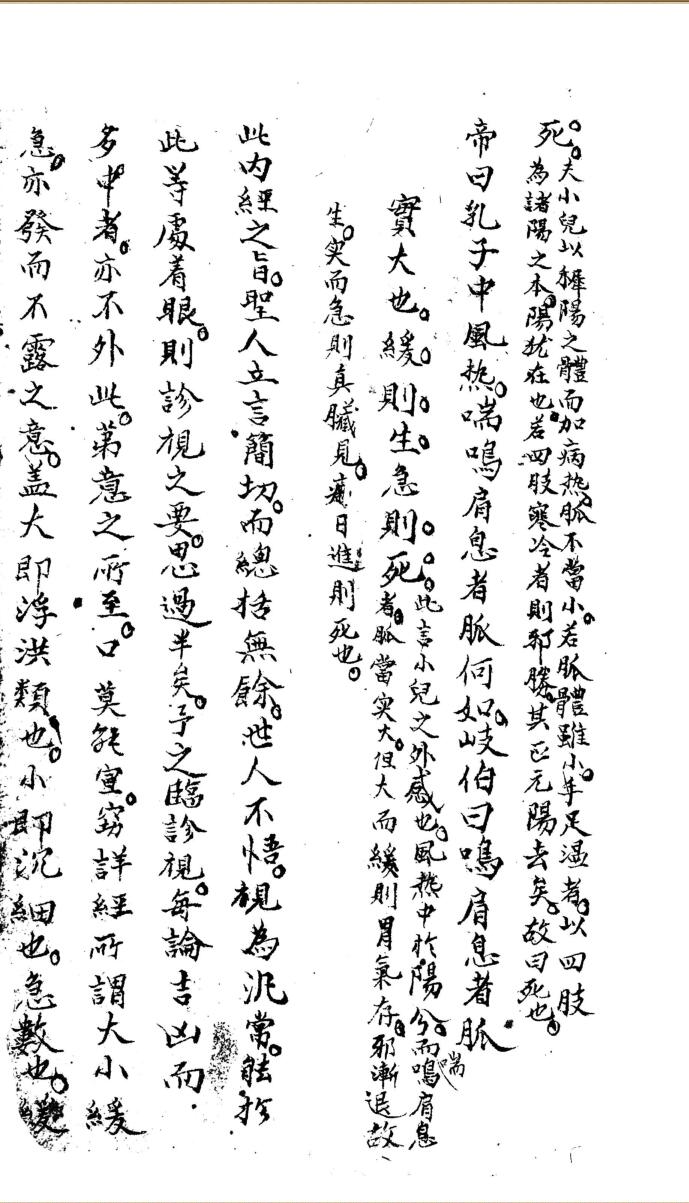 死。夫小兒以穉陽之體而加病热。脈不當小。若脈體雖小。手足温者。以四肢
為諸陽之本。陽犹在也。若四肢寒冷者則邪勝。其正元陽去矣。故曰死也。
帝曰乳子中風热。喘鳴肩息者脈何如。岐伯曰喘鳴肩息者脈
實大也。緩。則。生。急則。死。此言小兒之外感也。風热中於陽分。而喘鳴肩息
者。脈當实大。但大而緩則胃氣存。邪漸退故
生。实而急則真臓見。病日進則死也。
此内經之旨。聖人立言簡切。而總括無餘。世人不悟。視為汎常。能於
此等處着眼。則診視之要。思過半矣。予之臨診視。每論吉凶而
多中者。亦不外此。第意之所至。口莫能宣。窃詳經所謂大小緩
急。亦發而不露之意。盖大即浮洪類也。小即沉細也。急數也。緩